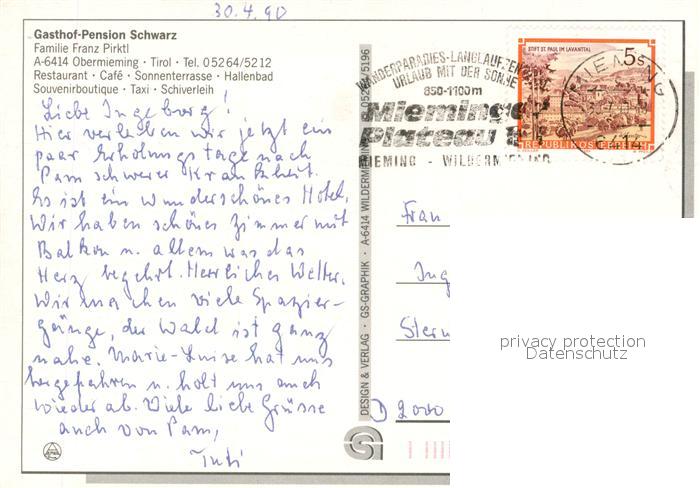 30.4.90
Gasthof-Pension Schwarz
Familie Franz Pirktl
A-6414 Obermieming · Tirol · Tel. 05264/5212
Restaurant · Café · Sonnenterrasse · Hallenbad
Souvenirboutique · Taxi · Schiverleih
Liebe Ingeborg!
Hier verleben wir jetzt ein
paar Erholungstage nach
Pam schwerer Krankheit.
Es ist ein wunderschönes Hotel.
Wir haben schönes Zimmer mit
Balkon u. allem was das
Herz begehrt. Herrliches Wetter.
Wir machen viele Spazier-
gänge, der Wald ist ganz
nahe. Marie-Luise hat uns
hergefahren u. holt uns auch
wieder ab. Viele liebe Grüsse
auch von Pam,
DESIGN & VERLAG · GS-GRAPHIK · A-6414 WILDERMIEMING 05264/5196
WANDERPARADIES-LANGLAUFZEN
URLAUB MIT DER SONNE
850-1100m
Mieminger
Plateau
MIEMING - WILDERMIEMING
STIFT ST. PAUL IM LAVANTTAL
5s
REPUBLIK ÖSTERREICH
6414
Frau
Ing
Stern
D 2000
privacy protection
Datenschutz